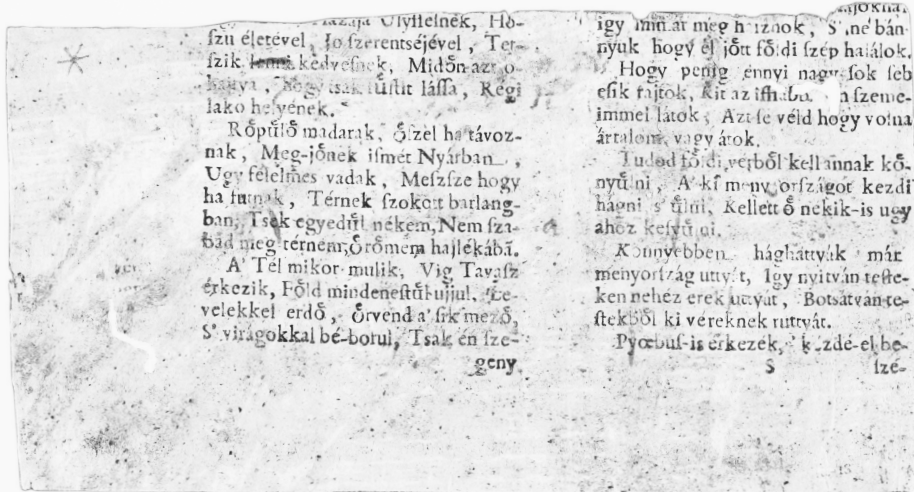 Ulyſſeſnek, Ho-
ſzu életével, Jo ſzerentséjével, Tet-
ſzik kedveſnek, Midőn azt o-
hogy tsak füſtit láſſa, Régi
lako helyének.
Rőpűlő madarak, őſzel ha távoz-
nak, Meg-jőnek iſmét Nyárban,
Ugy félelmes vadak, Meſzſze hogy
ha futnak, Térnek ſzokott barlang-
ban, Tsek egyedűl nékem, Nem ſza-
bad meg térnem, őrőmem hajlékábā.
A' Tél mikor mulik, Vig Tavaſz
érkezik, Főld mindeneſtűl ujjul, Le-
velekkel erdő, őrvend a' ſik mező,
S' virágokkal bé-borul, Tsak én ſze-
geny
igy meg S' ne bán-
nyuk hogy el jőtt főldi ſzép halálok.
Hogy penig ennyi nagy ſok ſeb
eſik rajtok, Kit az ſzeme-
immel látok, Azt ſe véld hogy volna
ártalom, vagy átok.
Tudod főldi verből kell annak kő-
nyűlni, A' ki meny orſzágot kezdi
hágni s' űlni, Kellett ő nekik-is ugy
ahoz keſzűlni.
Kőnnyebben hághattyák már
menyorſzág uttyát, Igy nyitván teſte-
ken nehéz erek uttyát, Botsátván te-
ſtekből ki véreknek ruttyát.
Pyœbus-is érkezék, kezdé-el be-
S ſzé-